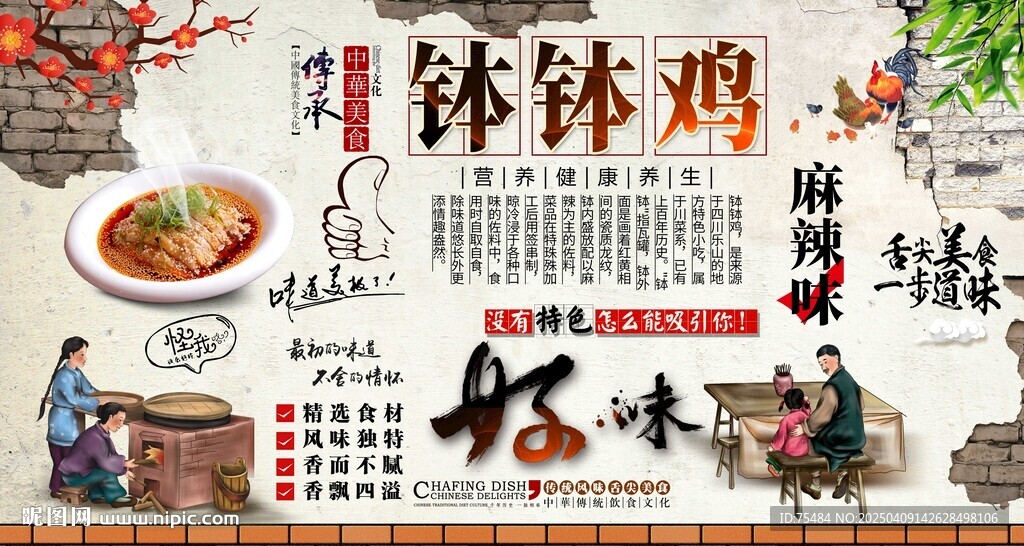 【中國傳統美食文化】
傳承
中華美食
文化
钵钵鸡
营养健康养生
钵钵鸡，是来源
于四川乐山的地
方特色小吃，属
于川菜系，已有
上百年历史。“钵
钵”指瓦罐，钵外
面是画着红黄相
间的瓷质龙纹，
钵内盛放配以麻
辣为主的佐料，
菜品在特殊殊加
工后用签串制，
晾冷浸于各种口
味的佐料中，食
用时自取自食，
除味道悠长外更
添情趣盎然。
麻辣味
舌尖美食
一步道味
味道美极了！
没有特色怎么能吸引你！
怪我啰
最初的味道
不舍的情怀
精选食材
风味独特
香而不腻
香飘四溢
好味
CHAFING DISH
CHINESE DELIGHTS
CHINESE TRADITIONAL DIET CULTURE
传统风味舌尖美食
中華傳統飲食文化
昵图网 www.nipic.com
ID:75484 NO:20250409142628498106